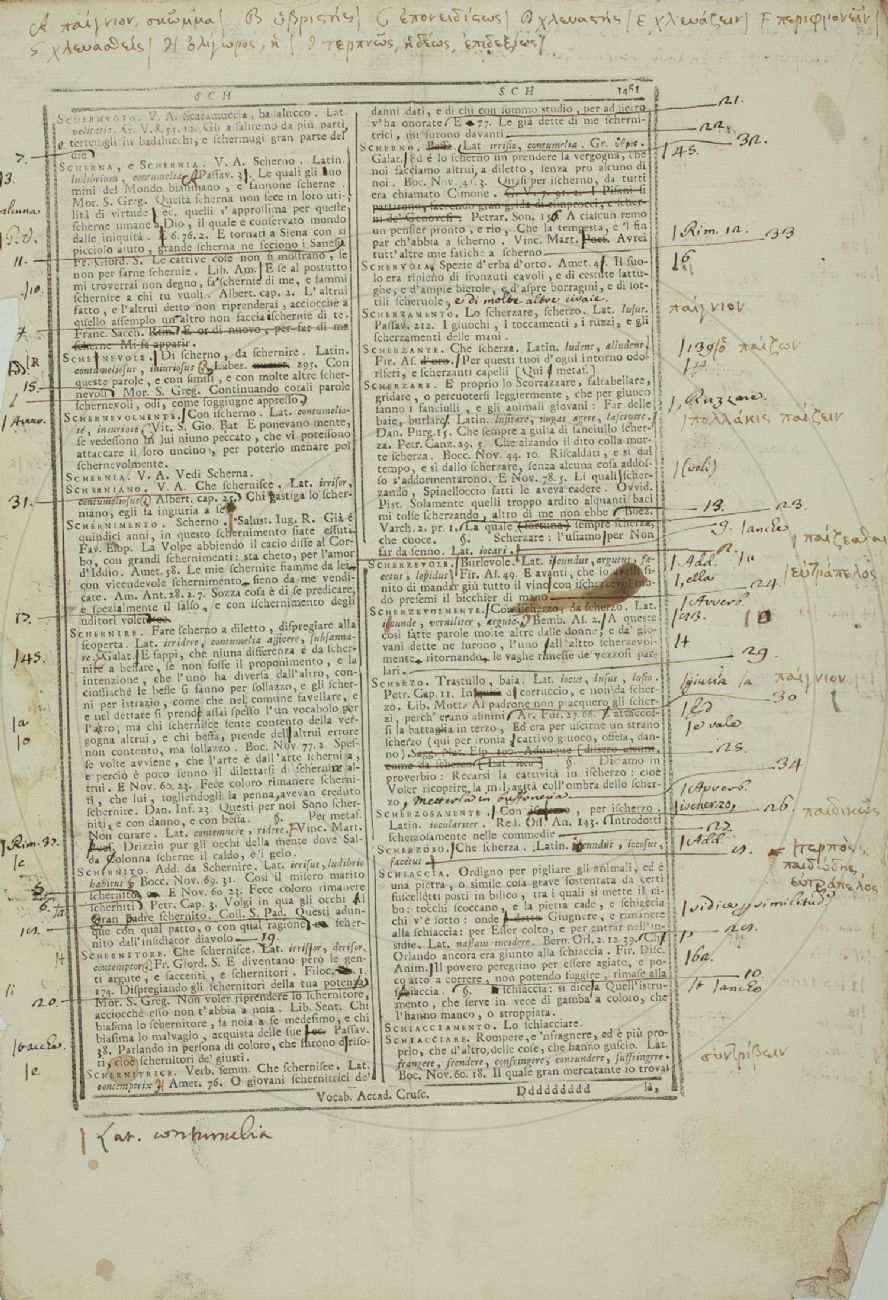 A παίγνιον, σκῶμμα| B ὑβριστής| C ἐπονειδίσως| D χλευαστής| E χλευάζειν| F περιφρονεῖν
G χλευασθείς| H ὀλίγωρος, ἡ | I τερπνῶς, ἡδέως, ἐπιδεξίως|
SCH
SCHERMUGIO. V. A. Scaramuccia, badalucco. Lat.
velitatio. G. V. 8. 55. 12. Gli assaliremo da più parti,
e tertengli in badalucchi, e schermugi gran parte del
die
SCHERNA, e SCHERNIA. V. A. Scherno. Latin.
ludibrium, contumelia Passav. 3. Le quali gli uo
mini del Mondo biasimano, e fannone scherne.
Mor. S. Greg. Questa scherna non fece in loro uti-
lità di virtude ec. quelli s'approssima per queste
scherne umane Dio, il quale e conservato mondo
dalle iniquità. 6. 76. 2. E tornati a Siena con sì
piccolo aiuto, grande scherna ne feciono i Sanesi
Fr. Giord. S. Le cattive cose non si mostrano, se
non per farne schernie. Lib. Am. E se al postutto
mi troverrai non degno, fa schernie di me, e fammi
schernire a chi tu vuoli. Albert. cap. 2. L'altrui
fatto, e l'altrui detto non riprenderai, acciocchè a
quello assemplo un'altro non faccia ischernie di te.
Franc. Sacch. Rim. E or di nuovo, per far di me
scherne Mi fa apparir.
SCHERNEVOLE. Di scherno, da schernire. Latin.
contumeliosus, iniuriosus Laber. 295. Con
queste parole, e con simili, e con molte altre scher-
nevoli Mor. S. Greg. Continuando cotali parole
schernevoli, odi, come soggiugne appresso
SCHERNEVOLMENTE. Con ischerno. Lat. contumelio-
se, iniuriose Vit. S. Gio. Bat. E ponevano mente,
se vedessono in lui niuno peccato, che vi potessono
attaccare il loro uncino, per poterlo menare poi
schernevolmente.
SCHERNIA. V. A. Vedi Scherna.
SCHERNIANO. V. A. Che schernisce. Lat. irrisor,
contumeliosus Albert. cap. 25. Chi gastiga lo scher-
niano, egli fa ingiuria a se
SCHERNIMENTO. Scherno. Salust. Iug. R. Già è
quindici anni, in questo schernimento siate essuti
Fav. Esop. La Volpe abbiendo il cacio disse al Cor-
bo, con grandi schernimenti: sta cheto, per l'amor
d'Iddio. Amet. 58. Le mie schernite fiamme da lei,
con vicendevole schernimento, sieno da me vendi-
cate. Am. Ant. 28. 2. 7. Sozza cosa è di se predicare,
e spezialmente il falso, e con ischernimento degli
uditori
SCHERNIRE. Fare scherno a diletto, dispregiare alla
scoperta. Lat. irridere, contumelia afficere, subsanna-
re. Galat. E sappi, che niuna differenza è da scher-
nire a beffare, se non fosse il proponimento, e la
intenzione, che l'uno ha diversa dall'altro, con-
ciossiachè le beffe si fanno per sollazzo, e gli scher-
ni per istrazio, come che nel comune favellare, e
e nel dettare si prenda assai spesso l'un vocabolo per
l'altro; ma chi schernisce sente contento della ver-
gogna altrui, e chi beffa, prende dell'altrui errore
non contento, ma sollazzo. Boc. Nov. 77. 2. Spes-
se volte avviene, che l'arte è dall'arte schernita,
e perciò è poco senno il dilettarsi di schernire al-
trui. E Nov. 60. 23. Fece coloro rimanere scherni-
ti, che lui, togliendogli la penna, avevan creduto
schernire. Dan. Inf. 23. Questi per noi Sono scher-
niti, e con danno, e con beffa. §. Per metaf.
Non curare. Lat. contemnere, ridere. Vinc. Mart.
Drizzin pur gli occhi della mente dove Sal-
da Colonna scherne il caldo, e'l gelo.
SCHERNITO. Add. da Schernire. Lat. irrisus, ludibrio
habitus Bocc. Nov. 69. 31. Così il misero marito
schernito E Nov. 60 23. Fece coloro rimanere
scherniti Petr. Cap. 3. Volgi in qua gli occhi al
Gran padre schernito. Coll. S. Pad. Questi adun-
que con qual patto, o con qual ragione scher-
nito dall'insidiator diavolo
SCHERNITORE. Che schernisce. Lat. irrisor, derisor,
contemptor. Fr. Giord. S. E diventano però le gen-
ti argute, e saccenti, e schernitori. Filoc. 1.
174. Dispregiando gli schernitori della tua potenza
Mor. S. Greg. Non voler riprendere lo schernitore,
acciocchè esso non t'abbia a noia. Lib. Sent. Chi
biasima lo schernitore, fa noia a se medesimo, e chi
biasima lo malvagio, acquista delle sue Passav.
38. Parlando in persona di coloro, che furono diriso-
ri, cioè schernitori de' giusti.
SCHERNITRICE. Verb. femm. Che schernisce. Lat.
contemptrix Amet. 76. O giovani schernitrici de'
SCH 1461
danni dati, e di chi con sommo studio, per adietro
v'ha onorate E 77. Le già dette di me scherni-
trici, mi furono davanti
SCHERNO. Lat irrisio, contumelia. Gr. ὕβρις.
Galat. Ed è lo scherno un prendere la vergogna, che
noi facciamo altrui, a diletto, senza pro alcuno di
noi. Boc. Nov. 41. 3. Quasi per ischerno, da tutti
era chiamato Cimone. G. V. 7. 91. 1. I Pisani si
partirono, faccendo gran grida di rimprocci, e scher-
ni de' Genovesi. Petrar. Son. 156 A ciascun remo
un pensier pronto, e rio, Che la tempesta, e'l fin
par ch'abbia a scherno. Vinc. Mart. Avrei
tutt'altre mie fatiche a scherno
SCHERVOLA. Spezie d'erba d'orto. Amet. 4. Il suo-
lo era ripieno di fronzuti cavoli, e di cestute lattu-
ghe, e d'ampie bietole, e d'aspre borragini, e di sot-
tili schervole, e di molte altre civaie.
SCHERZAMENTO. Lo scherzare, scherzo. Lat. lusus.
Passav. 212. I giuochi, i toccamenti, i ruzzi, e gli
scherzamenti delle mani.
SCHERZANTE. Che scherza. Latin. ludens, alludens
Fir. As. d'oro. Per questi tuoi d'ogni intorno odo-
riferi, e scherzanti capelli [Qui metaf.]
SCHERZARE. È proprio lo Scorrazzare, saltabellare,
gridare, o percuotersi leggiermente, che per giuoco
fanno i fanciulli, e gli animali giovani: Far delle
baie, burlare. Latin. lusitare, nugas agere, lascivire.
Dan. Purg. 15. Che sempre a guisa di fanciullo scher-
za. Petr. Canz. 39. 5. Che alzando il dito colla mor-
te scherza. Bocc. Nov. 44. 10. Riscaldati, e sì dal
tempo, e sì dallo scherzare, senza alcuna cosa addos-
so s'addormentarono. E Nov. 78. 5. Li quali scher-
zando, Spinelloccio fatti le aveva cadere. Ovvid.
Pist. Solamente quelli troppo ardito alquanti baci
mi tolse scherzando, altro di me non ebbe Boez.
Varch. 2. pr. 1. La quale (fortuna) sempre scherza,
che cuoce. §. Scherzare: l'usiamo per Non
far da senno. Lat. iocari.
SCHERZEVOLE. Burlevole. Lat. iocundus, argutus, fa-
cetus, lepidus Fir. As. 49. E avanti, che io avessi fi-
nito di mandar giù tutto il vino, con ischerzevol mo-
do presemi il bicchier di mano
SCHERZEVOLMENTE. Con ischerzo, da scherzo. Lat.
iocunde, verniliter, argute. Bemb. As. 2. A queste
così fatte parole molte altre dalle donne, e da' gio-
vani dette ne furono, l'uno all'altro scherzevol-
mente, ritornando le vaghe rimesse de' vezzosi par-
lari.
SCHERZO. Trastullo, baia. Lat. iocus, lusus, lusio.
Petr. Cap. 11. In di corruccio, e non da scher-
zo. Lib. Mott. Al padrone non piacquero gli scher-
zi, perch'erano asinini Ar. Fur. 27. 66. T'attaccos-
si la battaglia in terzo, Ed era per uscirne un strano
scherzo (qui per ironia cattivo giuoco, offesa, dan-
no). Sagg. Nat. Esp. 100. Adunque (dissero alcuni,
come da scherzo) [Lat ioco] §. Diciamo in
proverbio: Recarsi la cattività in ischerzo: cioè
Voler ricoprire la malvagità coll'ombra dello scher-
zo, mettersela in buffoneria
SCHERZOSAMENTE. Con ischerzo, per ischerzo.
Latin. iocularitér. Red. An. 143. Introdotti
scherzosamente nelle commedie
SCHERZOSO. Che scherza. Latin. iocundus, iocosus,
facetus
SCHIACCIA. Ordigno per pigliare gli animali, ed è
una pietra, o simile cosa grave sostentata da certi
fuscelletti posti in bilico, tra i quali si mette il ci-
bo: tocchi scoccano, e la pietra cade, e schiaccia
chi v'è sotto: onde Giugnere, e rimanere
alla schiaccia: per Esser colto, e per entrar nell'in-
sidie. Lat. nassam incidere. Bern. Orl. 2. 12. 39. Ch'
Orlando ancora era giunto alla schiaccia. Fir. Disc.
Anim. Il povero peregrino per essere agiato, e po-
co atto a correre, non potendo fuggire, rimase alla
ischiaccia. §. Schiaccia: si dice a Quell'istru-
mento, che serve in vece di gamba a coloro, che
l'hanno manco, o stroppiata.
SCHIACCIAMENTO. Lo schiacciare.
SCHIACCIARE. Rompere, e 'nfragnere, ed è più pro-
prio, che d'altro, delle cose, che hanno guscio. Lat.
frangere, frendere, confringere, contundere, suffringere.
Boc. Nov. 60. 18. Il quale gran mercatante io trovai
Vocab. Accad. Crusc. Ddddddddd là,
| Lat. contumelia
7.
13.
alcuna
G. V.
11.
10
15
Avver.
31
17.
45.
a
o
Rim. 37.
e
5
6.
19.
20.
e
21.
22.
45. 32.
Rim. 12. 33
6
παίγνιον
139 παίζων
Ruzzare
πολλάκις παίζειν
13. 23
9. anche
παίζεαθαι
Add.
εὐτράπελος
ella 24
Avverb.
4
29
παίγνιον
30
Ed
e vale
25.
34
Avverb.
ischerzo, 26
παιδικῶς
27.
Add.
τερπνός,
παιδώδης,
εὐτράπελος
similitud.
10.
anche
συντρίβειν